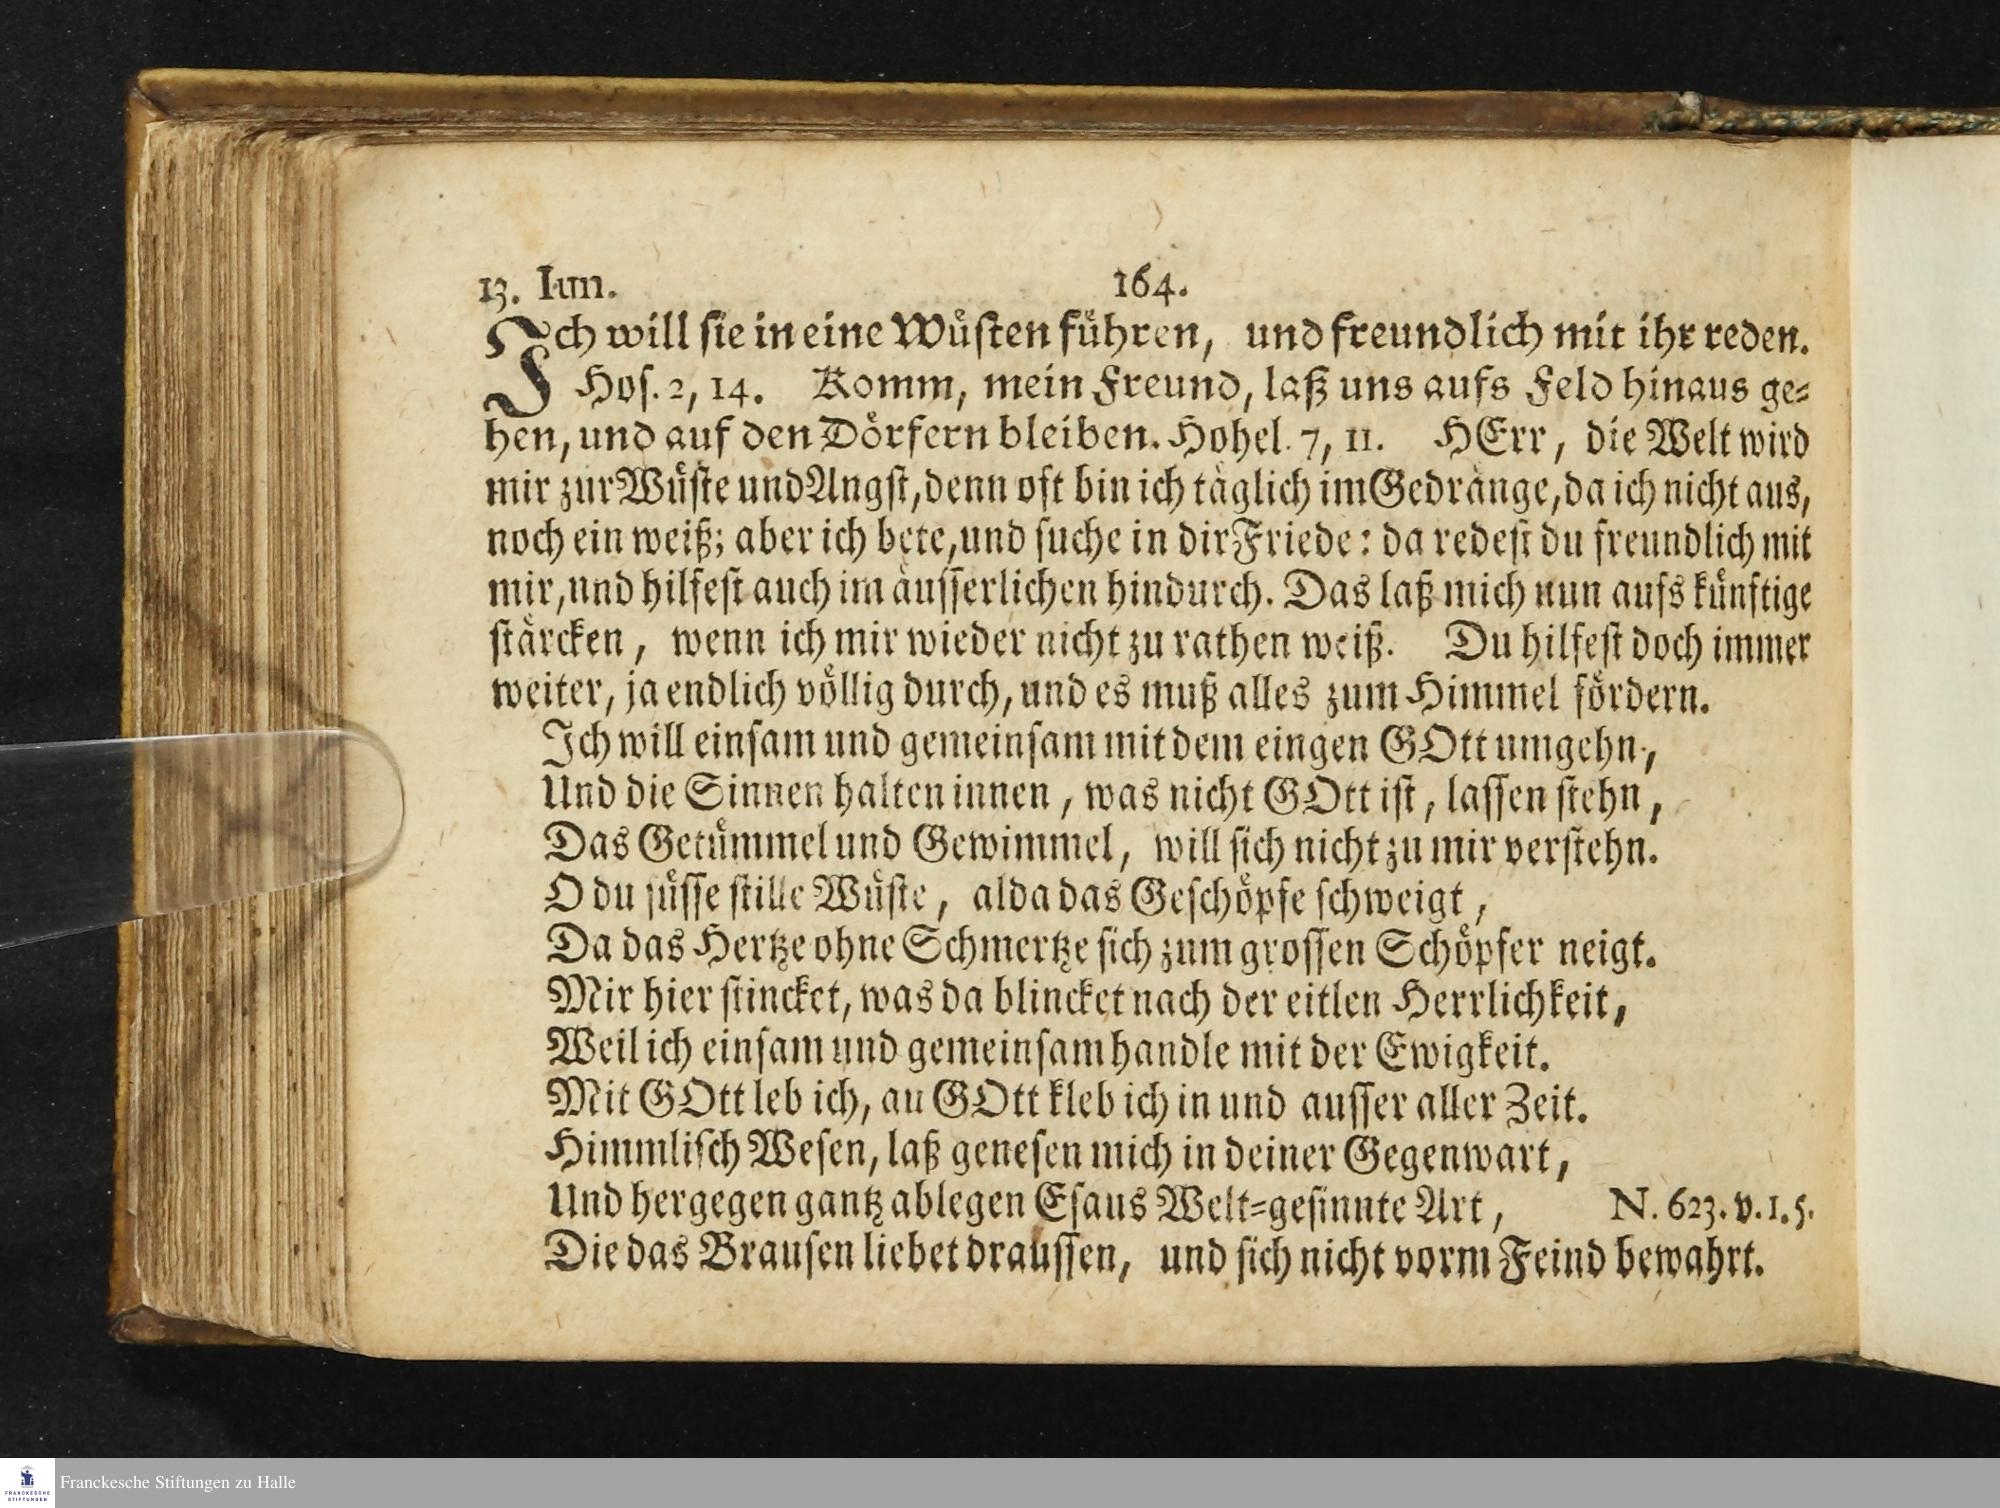 13. Iun. 164.
Ich will sie in eine Wüsten führen, und freundlich mit ihr reden.
Hos. 2, 14. Komm, mein Freund, laß uns aufs Feld hinaus ge-
hen, und auf den Dörfern bleiben. Hohel. 7, 11. HErr, die Welt wird
mir zur Wüste und Angst, denn oft bin ich täglich im Gedränge, da ich nicht aus,
noch ein weiß; aber ich bete, und suche in dir Friede: da redest du freundlich mit
mir, und hilfest auch im äusserlichen hindurch. Das laß mich nun aufs künftige
stärcken, wenn ich mir wieder nicht zu rathen weiß. Du hilfest doch immer
weiter, ja endlich völlig durch, und es muß alles zum Himmel fördern.
Ich will einsam und gemeinsam mit dem eingen GOtt umgehn,
Und die Sinnen halten innen, was nicht GOtt ist, lassen stehn,
Das Getümmel und Gewimmel, will sich nicht zu mir verstehn.
O du süsse stille Wüste, alda das Geschöpfe schweigt,
Da das Hertze ohne Schmertze sich zum grossen Schöpfer neigt.
Mir hier stincket, was da blincket nach der eitlen Herrlichkeit,
Weil ich einsam und gemeinsam handle mit der Ewigkeit.
Mit GOtt leb ich, an GOtt kleb ich in und ausser aller Zeit.
Himmlisch Wesen, laß genesen mich in deiner Gegenwart,
Und hergegen gantz ablegen Esaus Welt-gesinnte Art, N. 623. v. 1. 5.
Die das Brausen liebet draussen, und sich nicht vorm Feind bewahrt.
FRANCKESCHE
STIFTUNGEN
Franckesche Stiftungen zu Halle